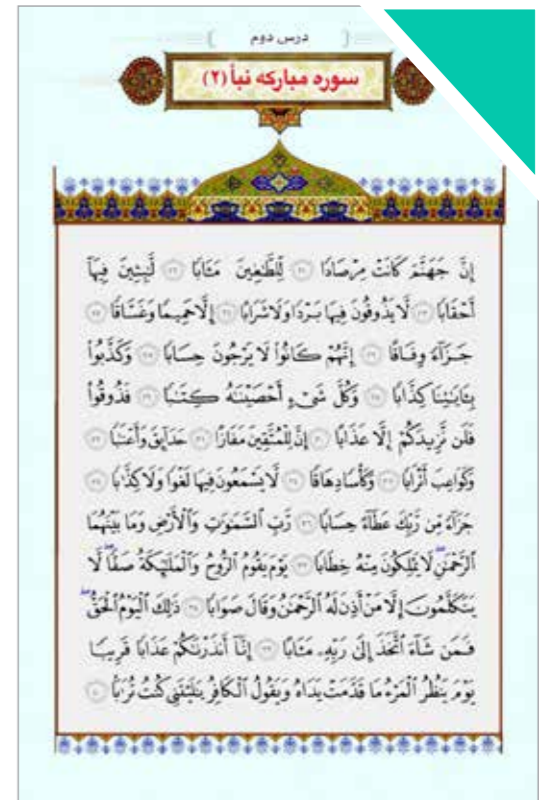 درس دوم
سوره مبارکه نبأ (۲)
إِنَّ جَهَنَّمَ كَانَتْ مِرْصَادًا ۲۱ لِّلطَّٰغِينَ مَـَٔابًا ۲۲ لَّٰبِثِينَ فِيهَآ
أَحْقَابًا ۲۳ لَّا يَذُوقُونَ فِيهَا بَرْدًا وَلَا شَرَابًا ۲۴ إِلَّا حَمِيمًا وَغَسَّاقًا ۲۵
جَزَآءً وِفَاقًا ۲۶ إِنَّهُمْ كَانُوا۟ لَا يَرْجُونَ حِسَابًا ۲۷ وَكَذَّبُوا۟
بِـَٔايَٰتِنَا كِذَّابًا ۲۸ وَكُلَّ شَىْءٍ أَحْصَيْنَٰهُ كِتَٰبًا ۲۹ فَذُوقُوا۟
فَلَن نَّزِيدَكُمْ إِلَّا عَذَابًا ۳۰ إِنَّ لِلْمُتَّقِينَ مَفَازًا ۳۱ حَدَآئِقَ وَأَعْنَٰبًا ۳۲
وَكَوَاعِبَ أَتْرَابًا ۳۳ وَكَأْسًا دِهَاقًا ۳۴ لَّا يَسْمَعُونَ فِيهَا لَغْوًا وَلَا كِذَّٰبًا ۳۵
جَزَآءً مِّن رَّبِّكَ عَطَآءً حِسَابًا ۳۶ رَّبِّ ٱلسَّمَٰوَٰتِ وَٱلْأَرْضِ وَمَا بَيْنَهُمَا
ٱلرَّحْمَٰنِ ۖ لَا يَمْلِكُونَ مِنْهُ خِطَابًا ۳۷ يَوْمَ يَقُومُ ٱلرُّوحُ وَٱلْمَلَٰٓئِكَةُ صَفًّا ۖ لَّا
يَتَكَلَّمُونَ إِلَّا مَنْ أَذِنَ لَهُ ٱلرَّحْمَٰنُ وَقَالَ صَوَابًا ۳۸ ذَٰلِكَ ٱلْيَوْمُ ٱلْحَقُّ ۖ
فَمَن شَآءَ ٱتَّخَذَ إِلَىٰ رَبِّهِۦ مَـَٔابًا ۳۹ إِنَّآ أَنذَرْنَٰكُمْ عَذَابًا قَرِيبًا
يَوْمَ يَنظُرُ ٱلْمَرْءُ مَا قَدَّمَتْ يَدَاهُ وَيَقُولُ ٱلْكَافِرُ يَٰلَيْتَنِى كُنتُ تُرَٰبًۢا ۴۰